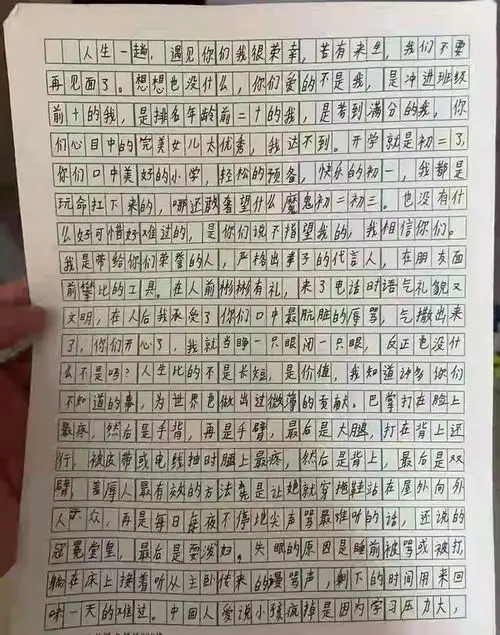 人生一趟，遇见你们我很荣幸，若有来生，我们不要
再见面了。想想也没什么，你们爱的不是我，是冲进班级
前十的我，是排名年龄前二十的我，是考到满分的我，你
们心目中的完美女儿太优秀，我达不到。开学就是初二了，
你们口中美好的小学，轻松的预备，快乐的初一，我都是
玩命扛下来的，哪还敢奢望什么魔鬼初二初三。也没有什
么好可惜好难过的，是你们说不指望我的，我相信你们。
我是带给你们荣誉的人，严格出事子的代言人，在朋友面
前攀比的工具。在人前彬彬有礼，来了电话时语气礼貌又
文明，在人后我承受了你们口中最肮脏的辱骂，气撒出来
了，你们开心了，我就当睁一只眼闭一只眼，反正也没什
么不是吗？人生比的不是长短，是价值，我知道许多你们
不知道的事，为世界也做出过微薄的贡献。巴掌打在脸上
最疼，然后是手背，再是手臂，最后是大腿，打在背上还
行，被皮带或电线抽时腿上最疼，然后是背上，最后是双
臂，羞辱人最有效的方法是让她就穿拖鞋站在屋外向外
人示众，再是每日每夜不停地尖声骂最难听的话，还说的
冠冕堂皇，最后是耍泼妇。失眠的原因是睡前被骂或被打，
躺在床上接着听从主卧传来的谩骂声，剩下的时间用来回
味一天的难过。中国人爱说小孩疯掉是因为学习压力大，